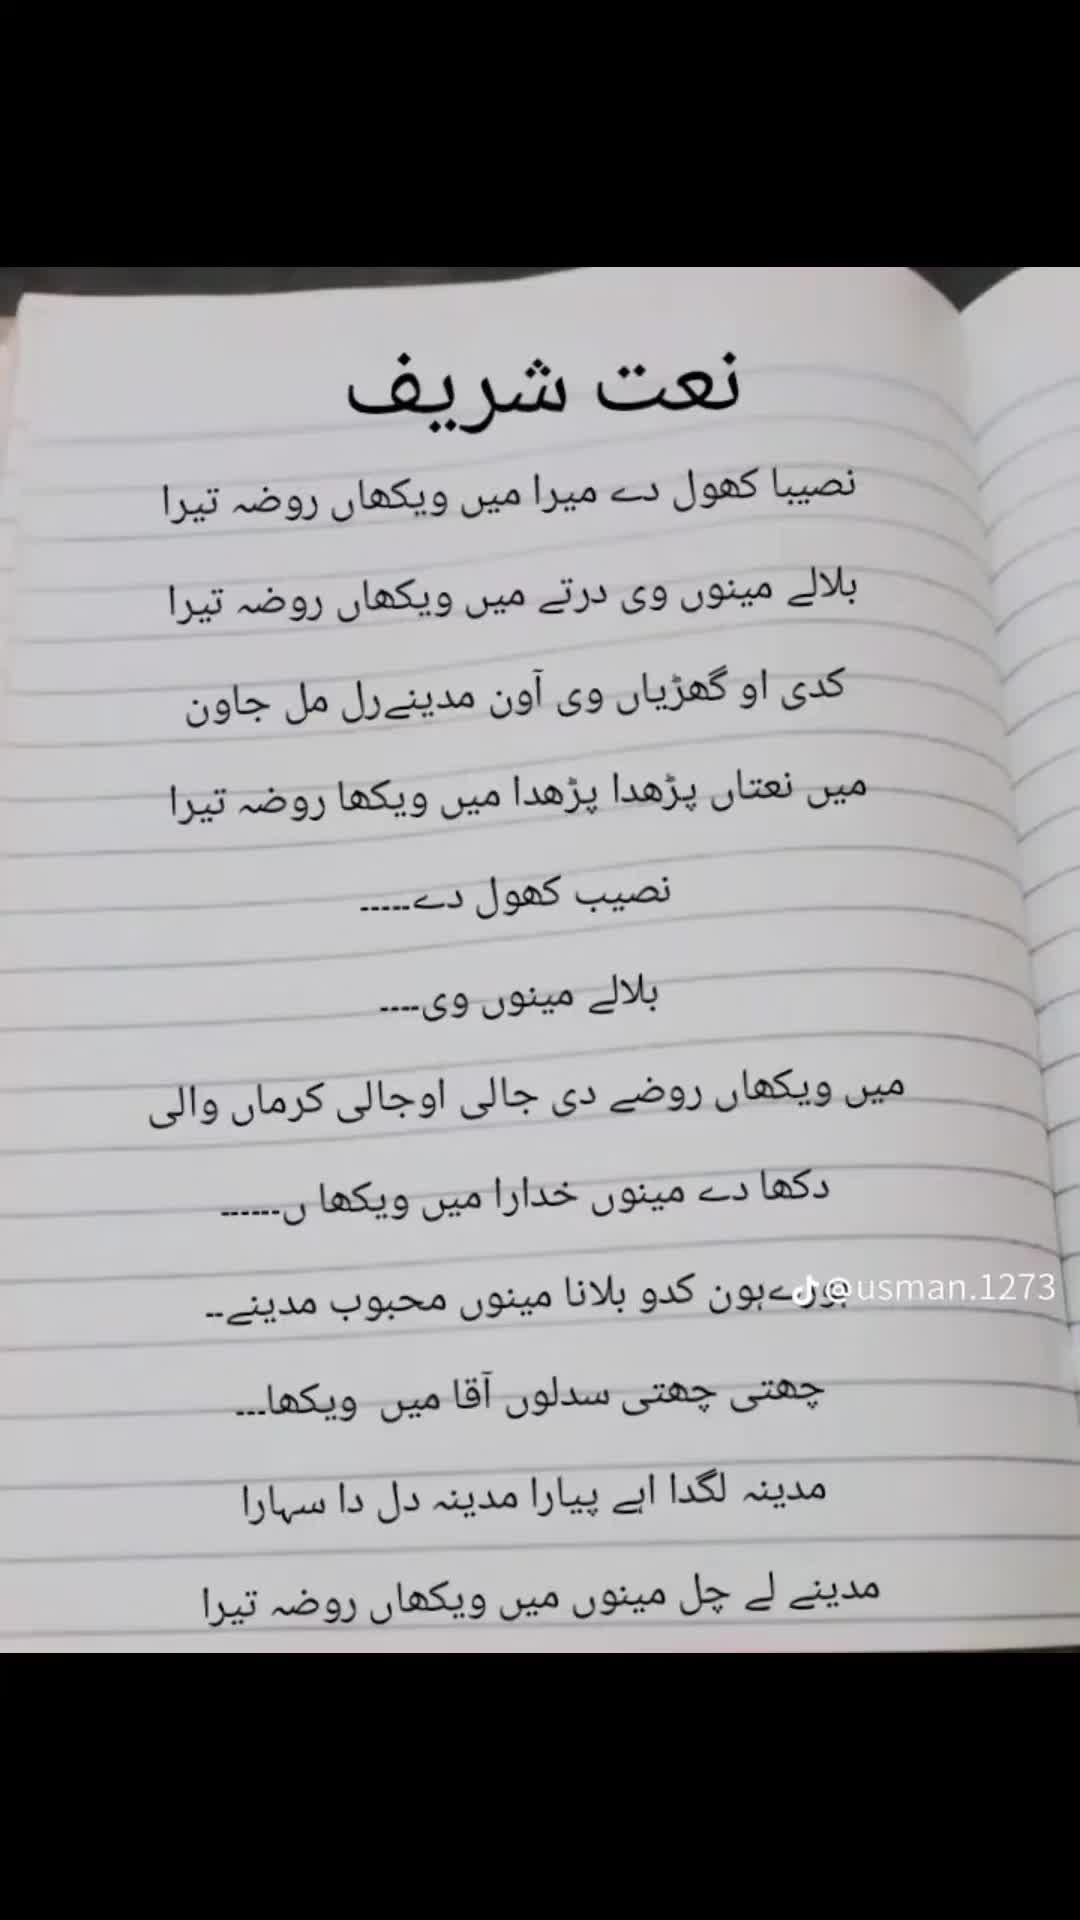 نعت شریف
نصیبا کھول دے میرا میں ویکھاں روضہ تیرا
بلالے مینوں وی درتے میں ویکھاں روضہ تیرا
کدی او گھڑیاں وی آون مدینےرل مل جاون
میں نعتاں پڑھدا پڑھدا میں ویکھا روضہ تیرا
نصیب کھول دے-----
بلالے مینوں وی----
میں ویکھاں روضے دی جالی اوجالی کرماں والی
دکھا دے مینوں خدارا میں ویکھا ں------
ہون کدو بلانا مینوں محبوب مدینے--
@usman.1273
چھتی چھتی سدلوں آقا میں ویکھا---
مدینہ لگدا اہے پیارا مدینہ دل دا سہارا
مدینے لے چل مینوں میں ویکھاں روضہ تیرا